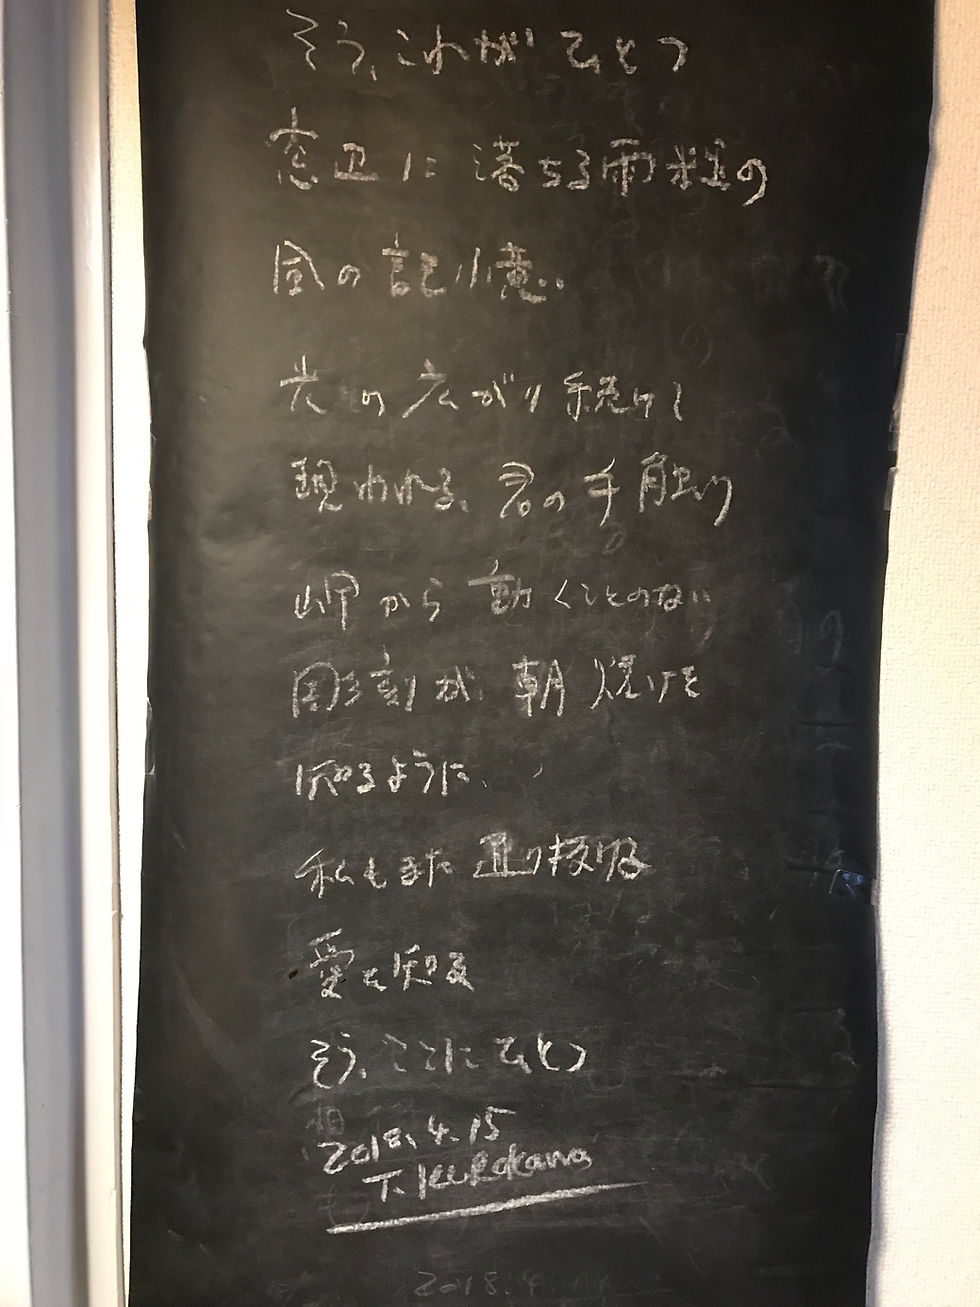 そう、これがひとつ
窓辺に落ちる雨粒の
風の記憶
光の広がり続けし
現われる、君の手触り
岬から動くことのない
彫刻が、朝焼けを
知るように、
私もまた通り抜ける
愛を知る
そう、ここにひとつ
2018.4.15
T. Kurokawa
2018.4.14